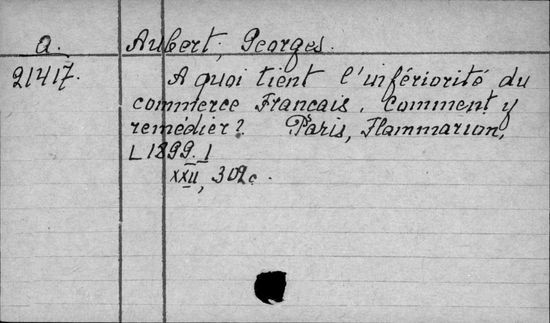 a. Aubert, Georges.
21417. A quoi tient l'infériorité du
commerce Francais. Comment y
remédier? Paris, Flammarion,
[1899.]
XXII, 302c.